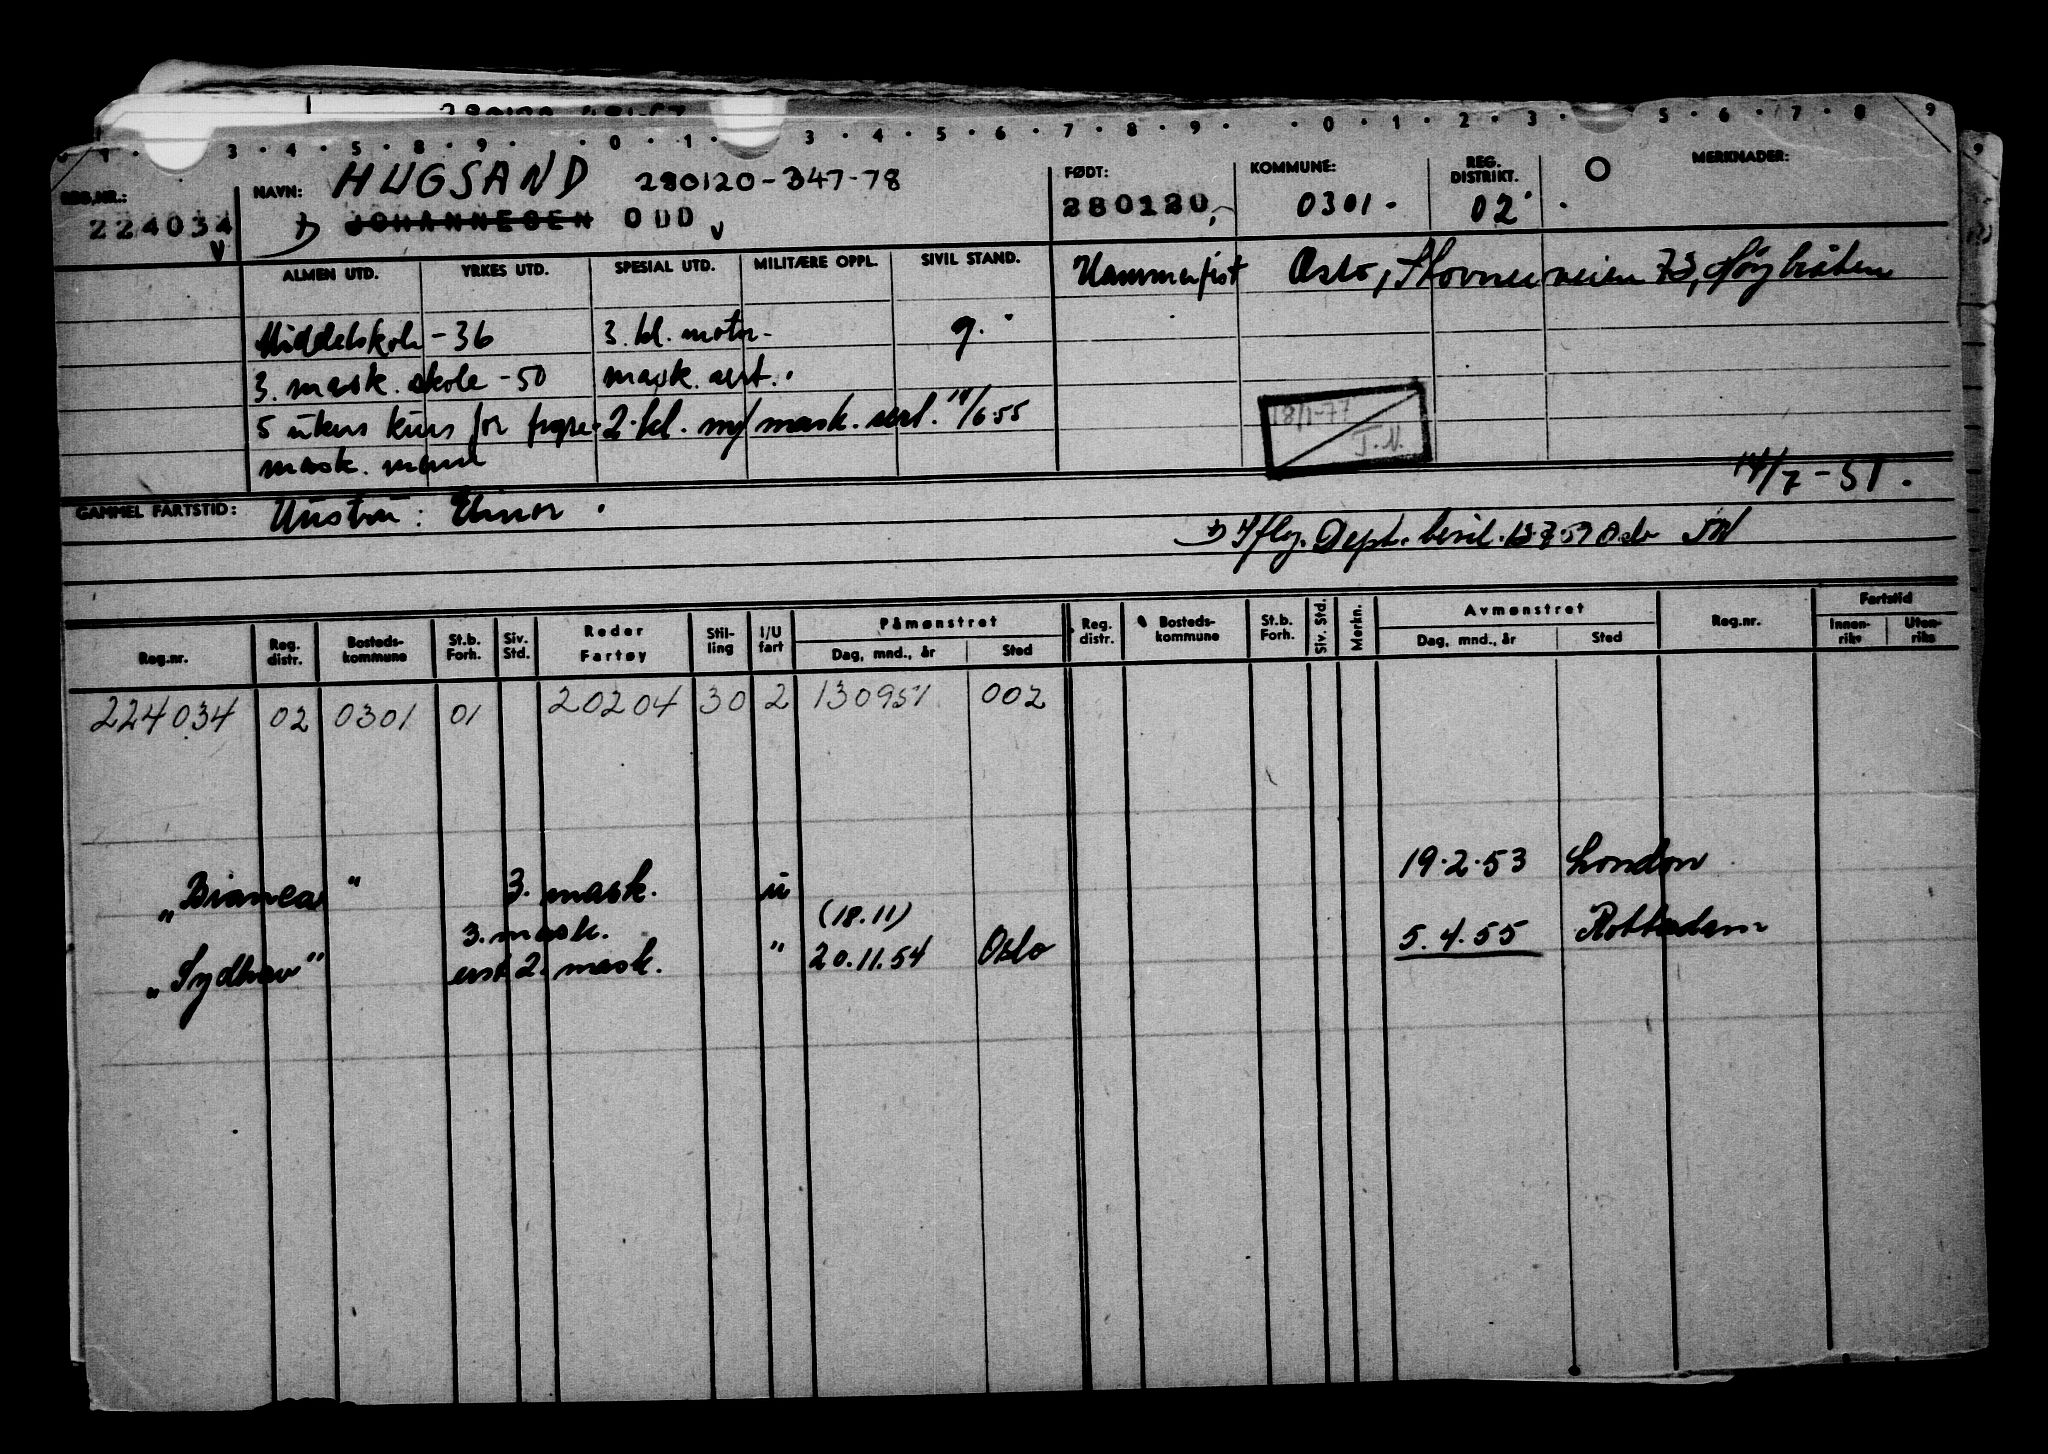 3 · 4 · 5 · 8 · 9 · · 0 · 1 · 3 · 4 · 5 · 6 · 7 · 8 · 9 · · 0 · 1 · 2 · 3 · 5 · 6 · 7 · 8 9
REG.NR.: NAVN: HUGSAND 280120-347-78 FØDT: KOMMUNE: REG. DISTRIKT. O MERKNADER:
224034 JOHANNESEN ODD 280120 0301- 02
ALMEN UTD. YRKES UTD. SPESIAL UTD. MILITÆRE OPPL. SIVIL STAND. Hammerfest Oslo, Stovnerveien 73, Høybråten
Middelskole -36 3. kl. motor- g.
3. mask. skole -50 mask. sert.
5 ukers kurs for 2. kl. m/ mask. sert. 14/6 55 18/1-77 T.N.
mask. mend
14/7 - 51.
GAMMEL FARTSTID: Hustru: Elinor
Iflg. Dept. bevil. Oslo
Reg.nr. Reg. distr. Bosteds- kommune St.b. Forh. Siv. Std. Reder Fartøy Stil- ling I/U fart Påmønstret Dag, mnd., år Sted Reg. distr. Bosteds- kommune St.b. Forh. Siv. Std. Merkn. Avmønstret Dag, mnd., år Sted Reg.nr. Fartstid Innen- riks Uten- riks
224034 02 0301 01 20204 30 2 130951 002
"Bianca" 3. mask. u 19.2.53 London
3. mask. (18.11)
"Sydhav" 2. mask. " 20.11.54 Oslo 5.4.55 Rotterdam